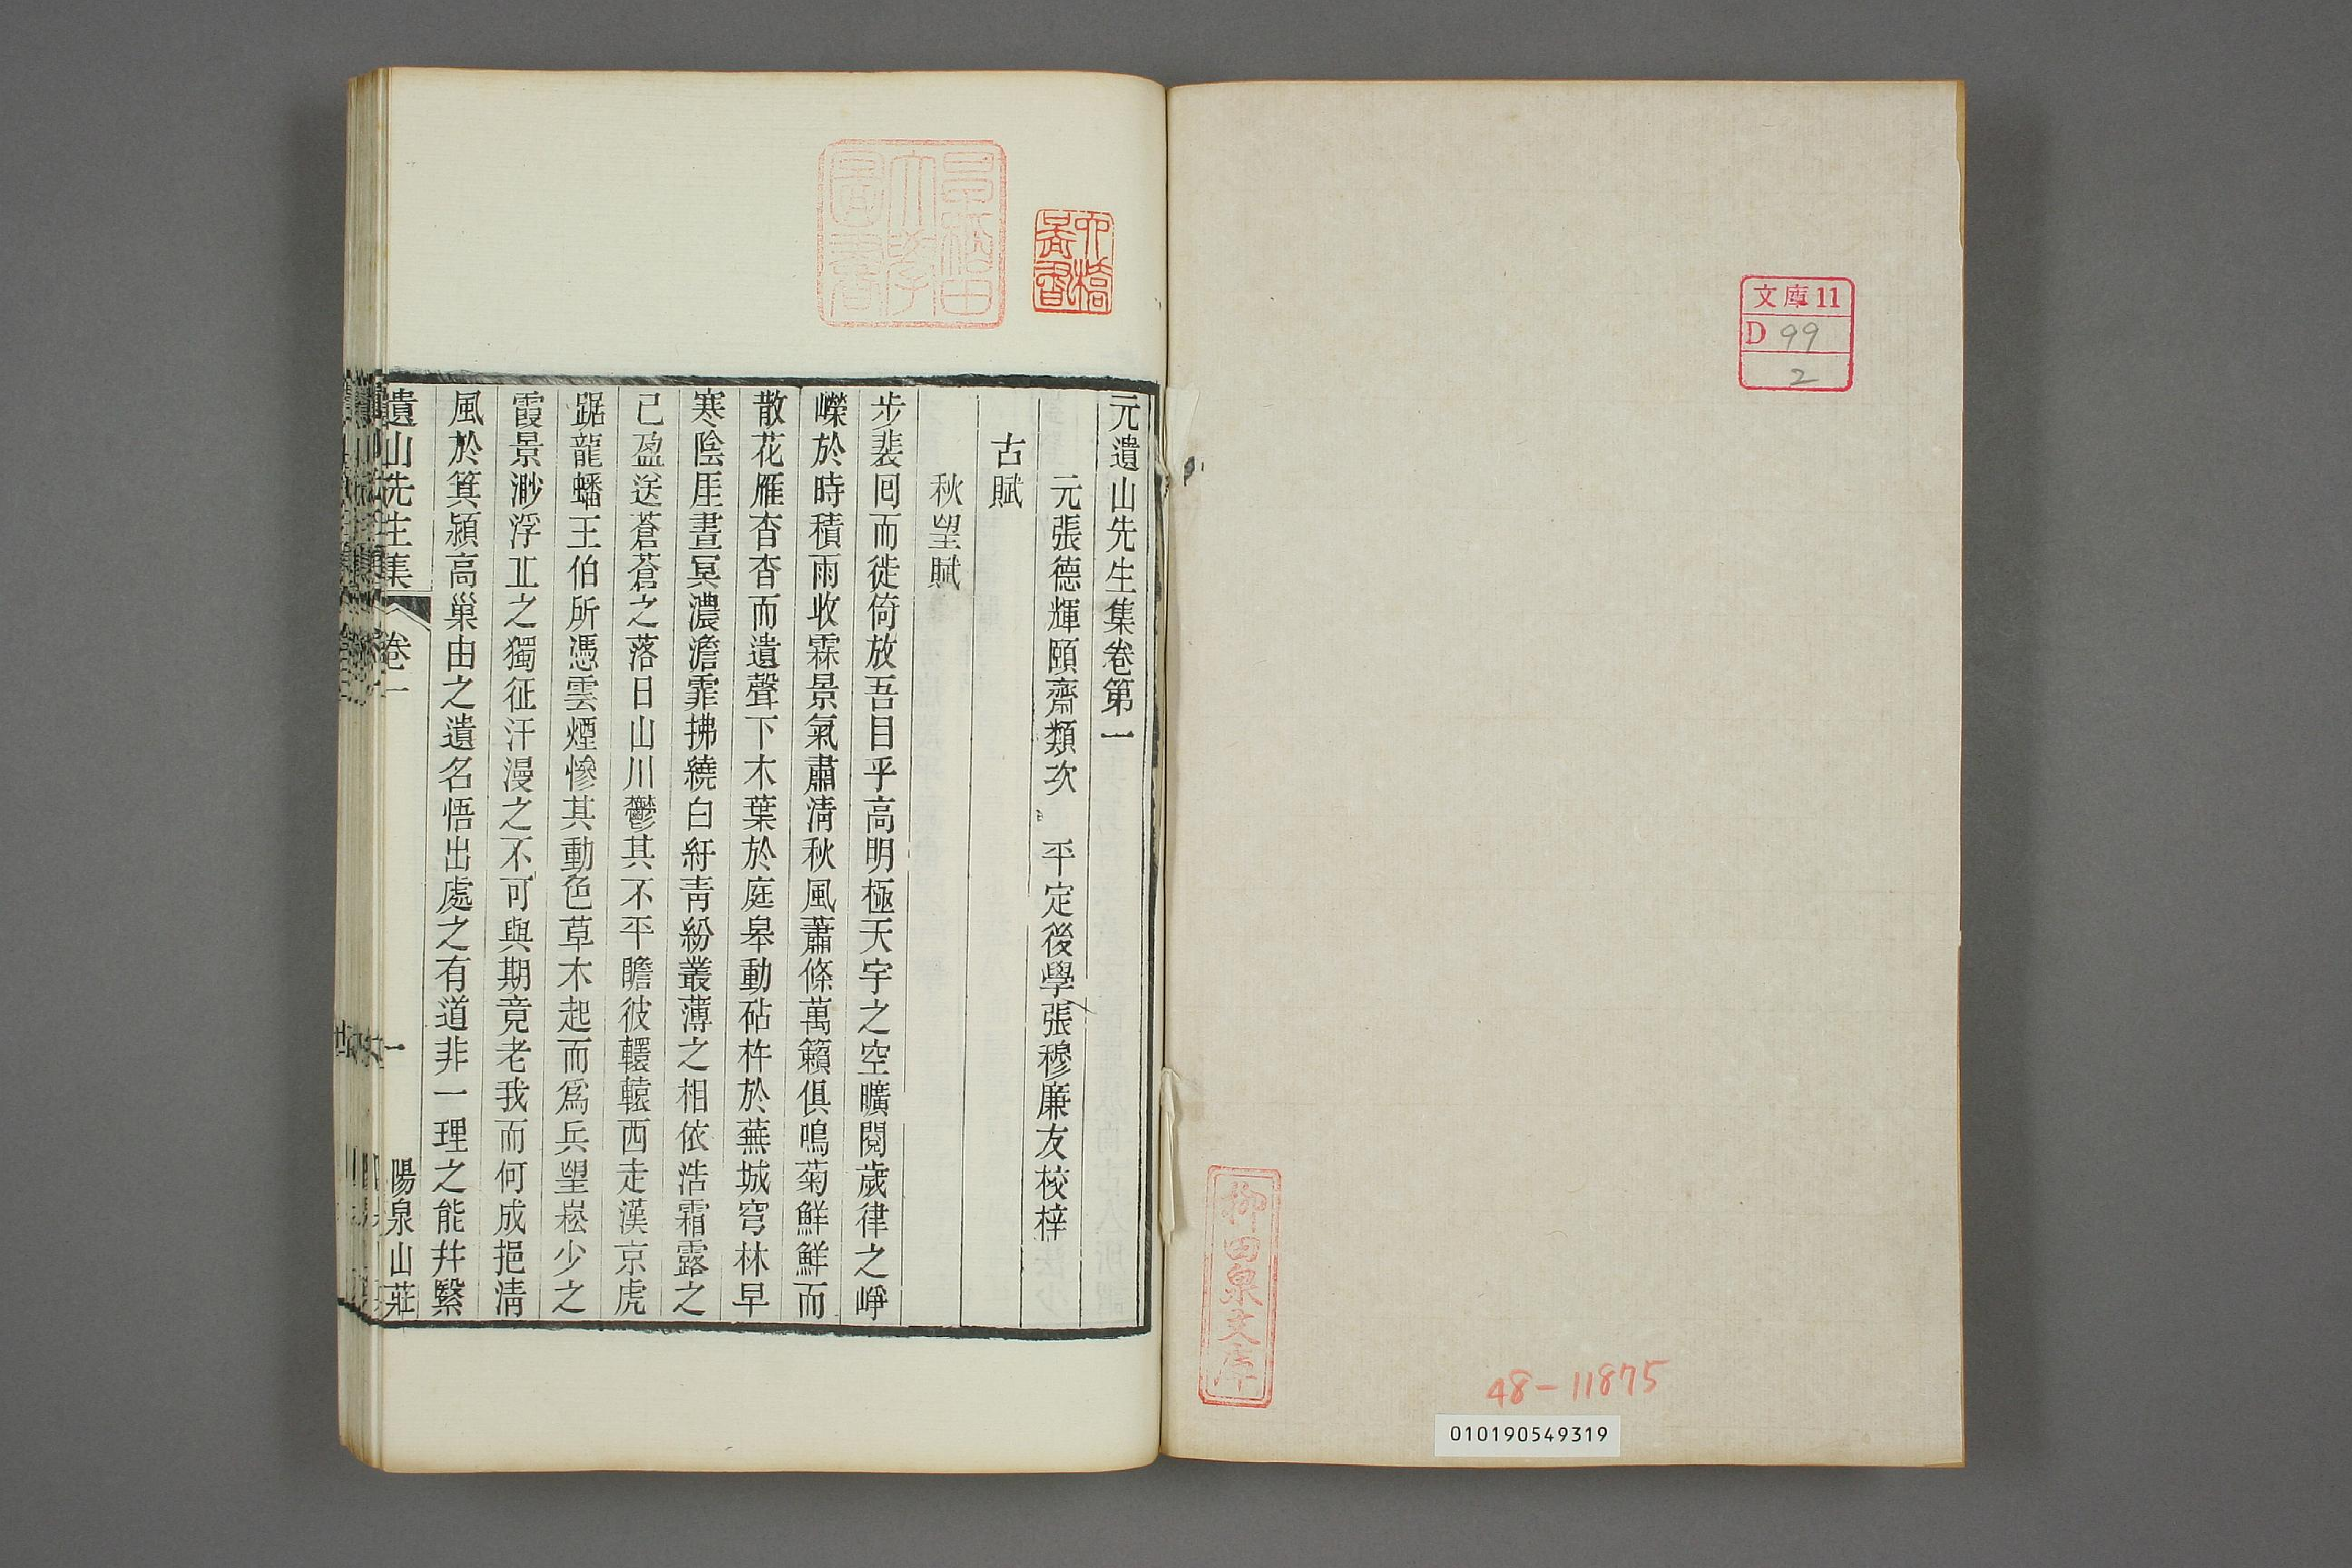 文庫11
D 99
2
柳田泉文庫
48-11875
010190549319
早稲田大學圖書
元遺山先生集卷第一
元張德輝頤齋類次 平定後學張穆廉友校梓
古賦
秋望賦
步裴回而徙倚放吾目乎高明極天宇之空曠閱歲律之崢
嶸於時積雨收霖景氣肅清秋風蕭條萬籟俱鳴菊鮮鮮而
散花雁杳杳而遺聲下木葉於庭皋動砧杵於蕪城穹林早
寒陰厓晝冥濃澹霏拂繞白紆青紛叢薄之相依浩霜露之
已盈送蒼蒼之落日山川鬱其不平瞻彼轘轅西走漢京虎
踞龍蟠王伯所憑雲煙慘其動色草木起而爲兵望崧少之
霞景渺浮丠之獨征汗漫之不可與期竟老我而何成挹清
風於箕潁高巢由之遺名悟出處之有道非一理之能幷繄
遺山先生集 卷一 一 陽泉山莊